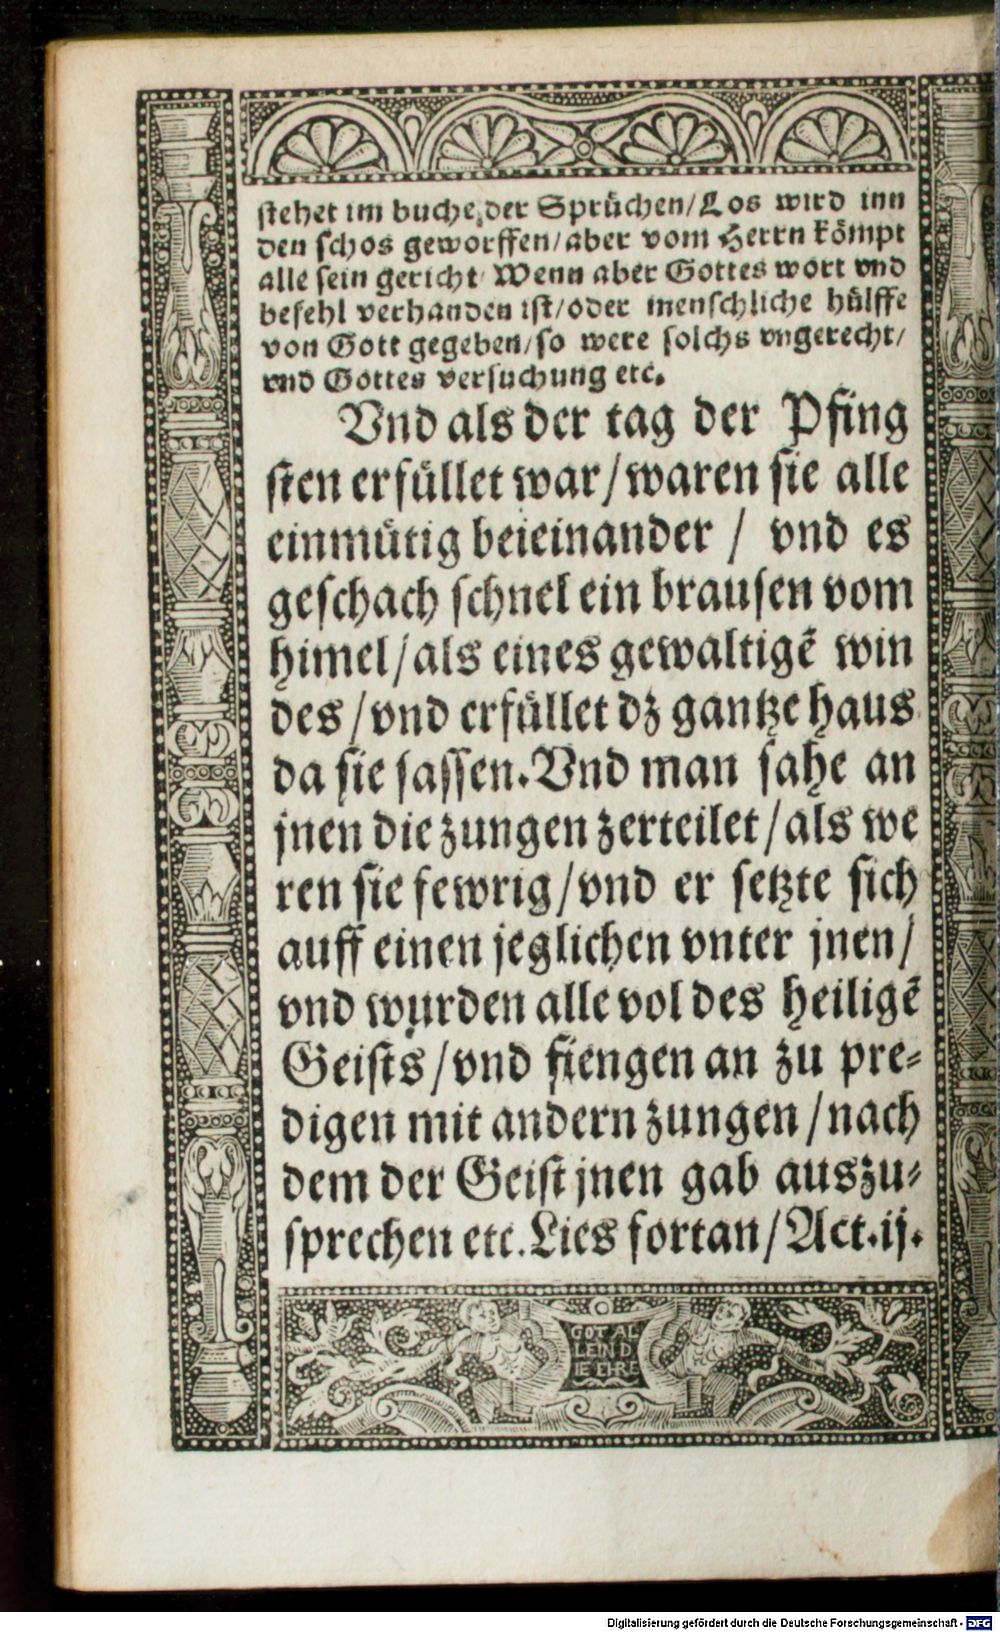 stehet im buche der Sprüchen/Los wird inn
den schos geworffen/aber vom Herrn kömpt
alle sein gericht Wenn aber Gottes wort vnd
befehl verhanden ist/oder menschliche hülffe
von Gott gegeben/so were solchs vngerecht/
vnd Gottes versuchung etc.
Vnd als der tag der Pfing
sten erfüllet war/waren sie alle
einmütig beieinander / vnd es
geschach schnel ein brausen vom
himel/als eines gewaltigē win
des/vnd erfüllet dz gantze haus
da sie sassen.Vnd man sahe an
jnen die zungen zerteilet/als we
ren sie fewrig/vnd er setzte sich
auff einen jeglichen vnter jnen/
vnd wurden alle vol des heiligē
Geists/vnd fiengen an zu pre⸗
digen mit andern zungen/nach
dem der Geist jnen gab auszu⸗
sprechen etc.Lies fortan/Act.ij.
GOT AL
LEIN D
IE EHRE
Digitalisierung gefördert durch die Deutsche Forschungsgemeinschaft - DFG